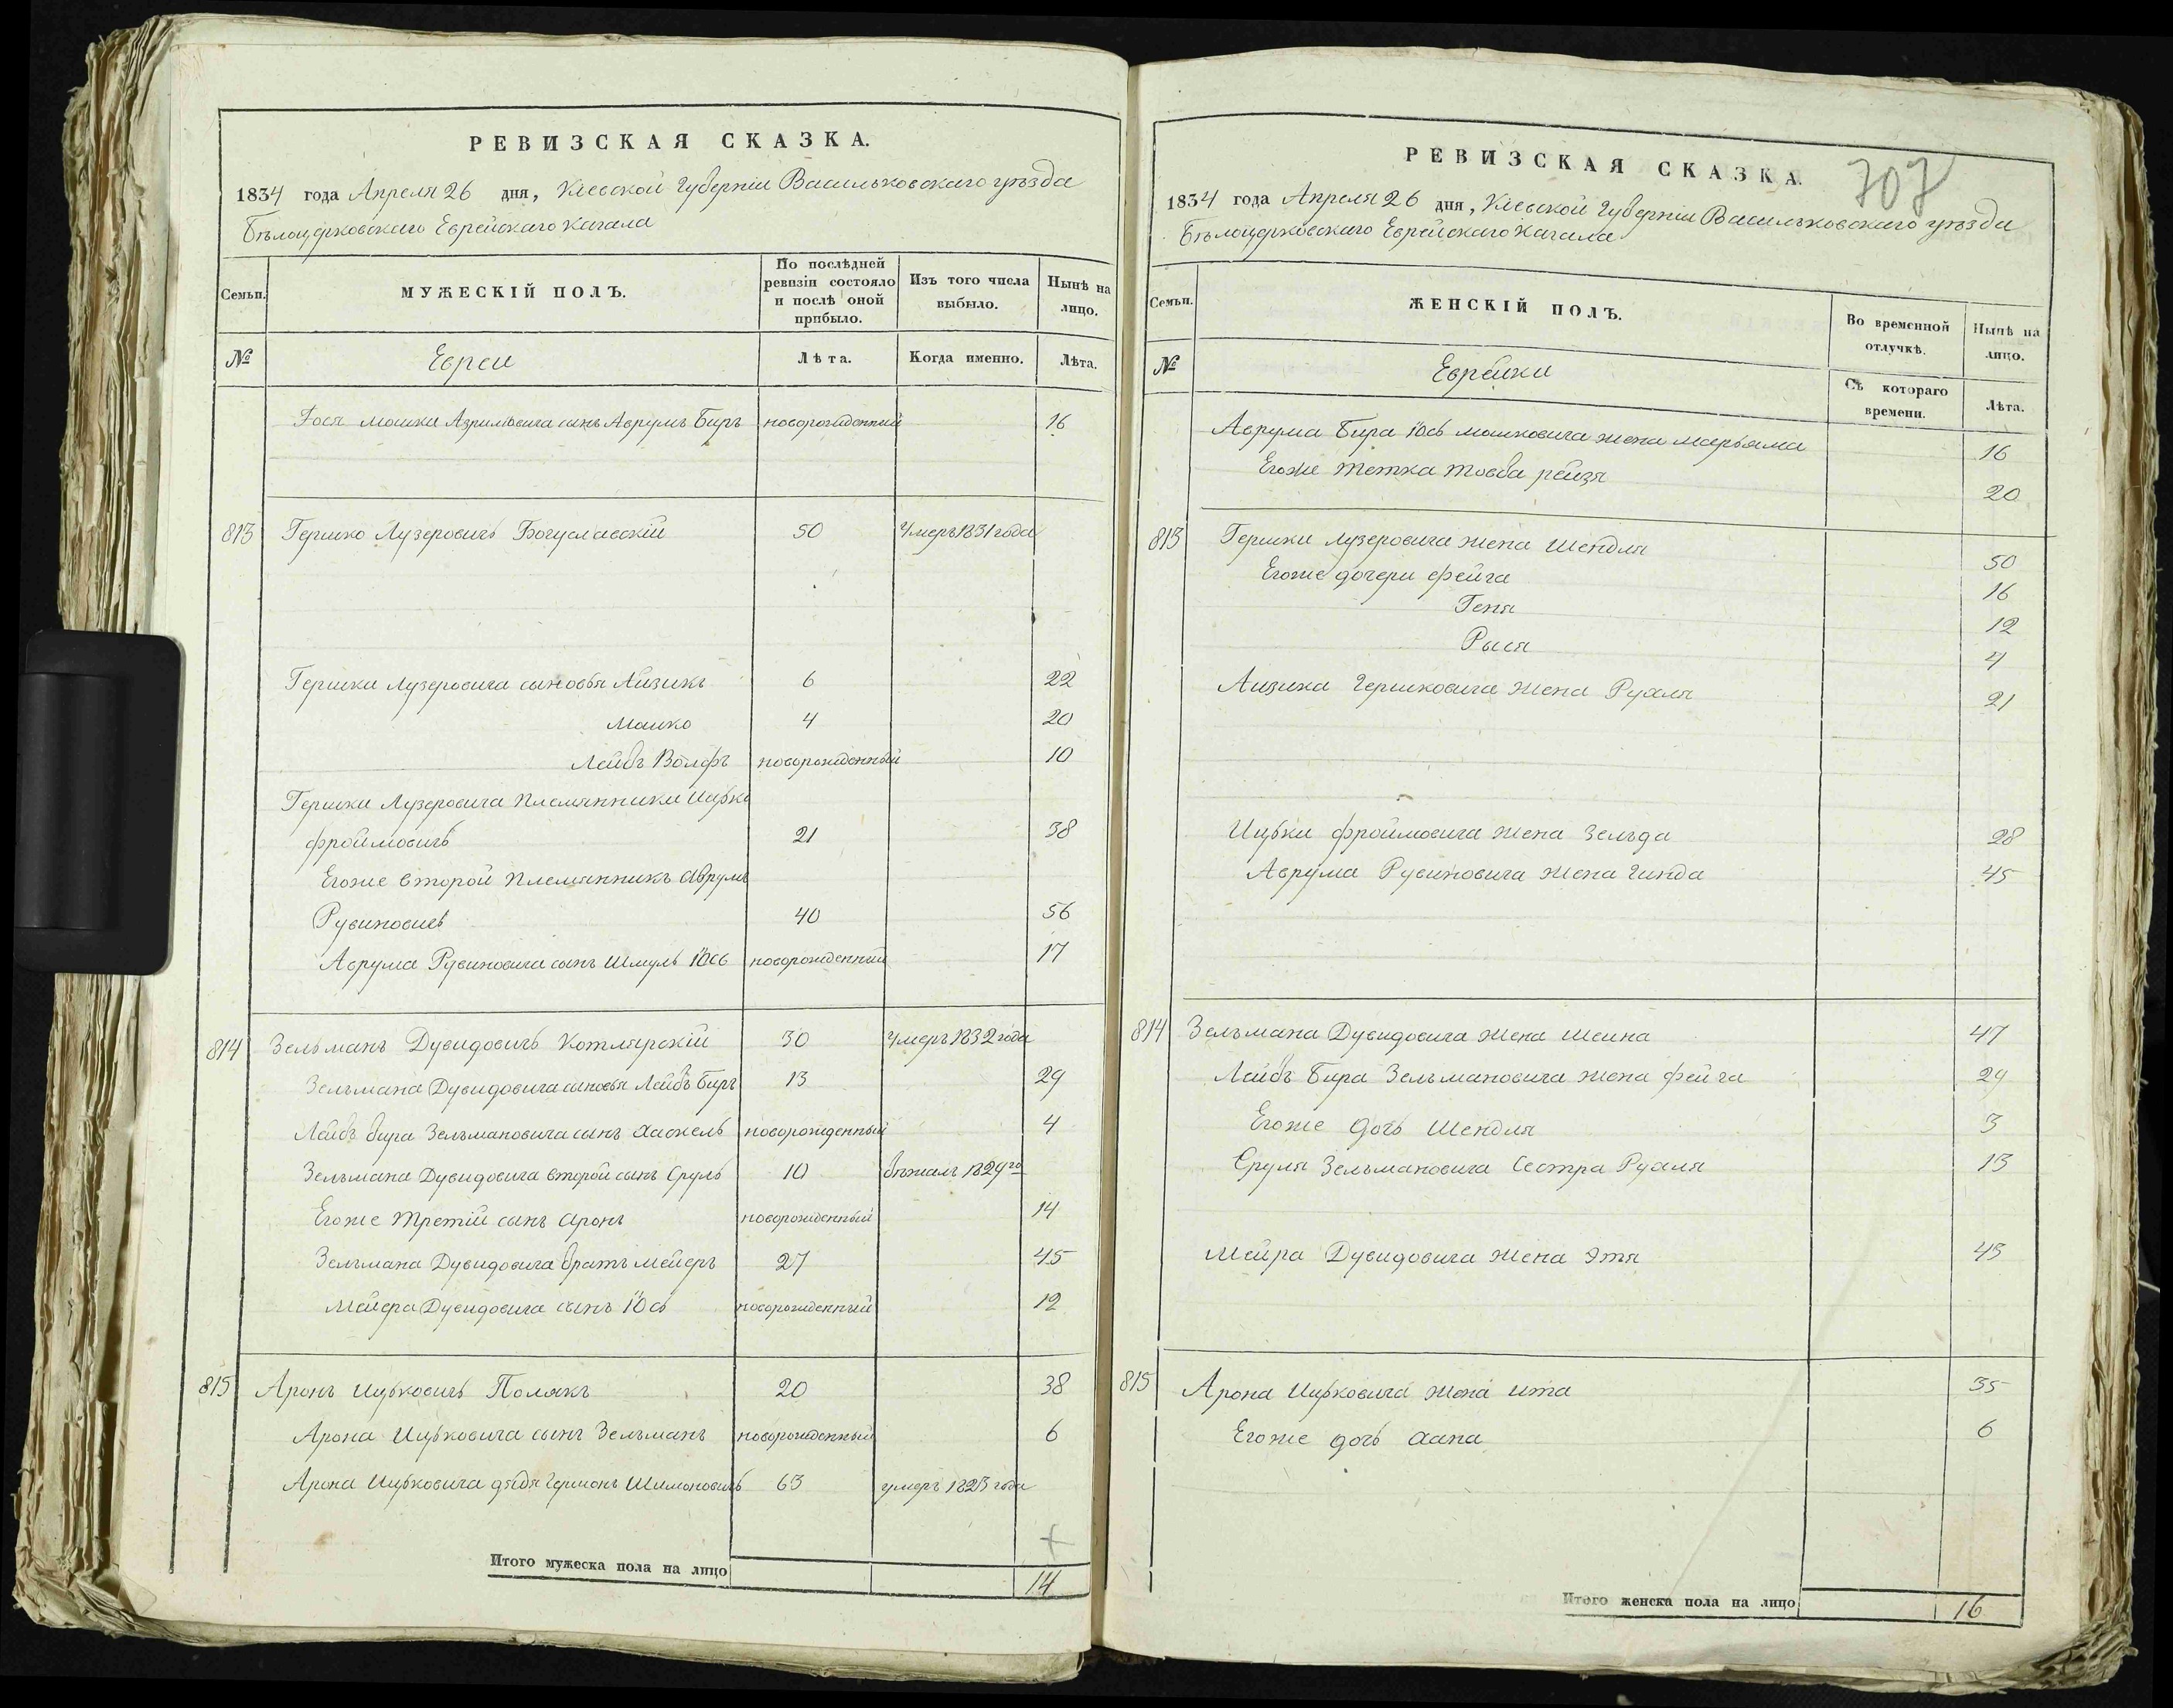 РЕВИЗСКАЯ СКАЗКА.
1834 года Апреля 26 дня, Кіевской Губерніи Васильковскаго уѣзда
Бѣлоцерковскаго Еврейскаго Кагала
Семьи.
МУЖЕСКІЙ ПОЛЪ.
По послѣдней ревизіи состояло и послѣ оной прибыло.
Изъ того числа выбыло.
Нынѣ на лицо.
№
Евреи
Лѣта.
Когда именно.
Лѣта.
Мошки Азрилевича сынъ Аврумъ Биръ новорожденный 16
813 Гершко Лузеровичъ Богуславскій 50 Умеръ 1831 года
Гершка Лузеровича сыновья Айзикъ 6 22
Мошко 4 20
Лейбъ Волфъ новорожденный 10
Гершки Лузеровича племянники Ицько
Фроймовичъ 21 38
Егоже второй племянникъ Аврумъ
Рувиновичъ 40 56
Аврума Рувиновича сынъ Шмуль Iось новорожденный 17
814 Зельманъ Дувидовичъ Котлярскій 30 Умеръ 1832 года
Зельмана Дувидовича сыновья Лейбъ Биръ 13 29
Лейбъ Бира Зельмановича сынъ Хаскель новорожденный 4
Зельмана Дувидовича второй сынъ Сруль 10 бѣжалъ 1829 го
Егоже третій сынъ Аронъ новорожденный 14
Зельмана Дувидовича братъ Мейеръ 27 45
Мейера Дувидовича сынъ Iось новорожденный 12
815 Аронъ Ицьковичъ Полякъ 20 38
Арона Ицьковича сынъ Зельманъ новорожденный 6
Арона Ицьковича дядя Гершонъ Шимоновичъ 63 умеръ 1823 года
Итого мужеска пола на лицо 14
РЕВИЗСКАЯ СКАЗКА.
707
1834 года Апреля 26 дня, Кіевской Губерніи Васильковскаго уѣзда
Бѣлоцерковскаго Еврейскаго Кагала
Семьи.
ЖЕНСКІЙ ПОЛЪ.
Во временной отлучкѣ.
Нынѣ на лицо.
№
Еврейки
Съ котораго времени.
Лѣта.
Аврума Бира Iось Мошковича жена Марьяма 16
Егоже тетка Товба Рейзя 20
813 Гершки Лузеровича жена Шендля 50
Егоже дочери Фейга 16
Геня 12
Рыся 4
Айзика Гершковича жена Рухля 21
Ицьки Фроймовича жена Зельда 28
Аврума Рувиновича жена Гинда 45
814 Зельмана Дувидовича жена Шеина 47
Лейбъ Бира Зельмановича жена Фейга 29
Егоже дочь Шендля 3
Сруля Зельмановича сестра Рухля 13
Мейра Дувидовича жена Этя 43
815 Арона Ицьковича жена Ита 35
Егоже дочь Хана 6
Итого женска пола на лицо 16